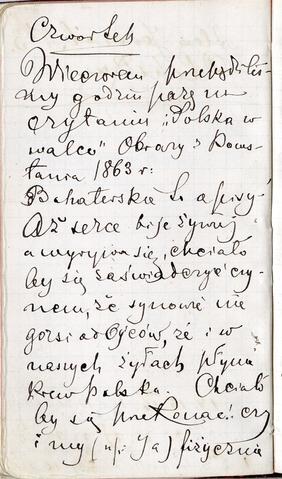 Czwartek
Wieczorem przepędziliś-
my godzin parę na
czytaniu "Polska w
walce" Obrazy z Pows-
tania 1863 r:
Bohaterskie to zapisy
Aż serce bije żywiej
a wyrywa się, chciało
by się zaświadczyć czy-
nem, że synowie nie
gorsi od Ojców, że i w
naszych żyłach płynie
krew polska. Chciało
by się przekonać czy
i my (np: Ja) fizycznie